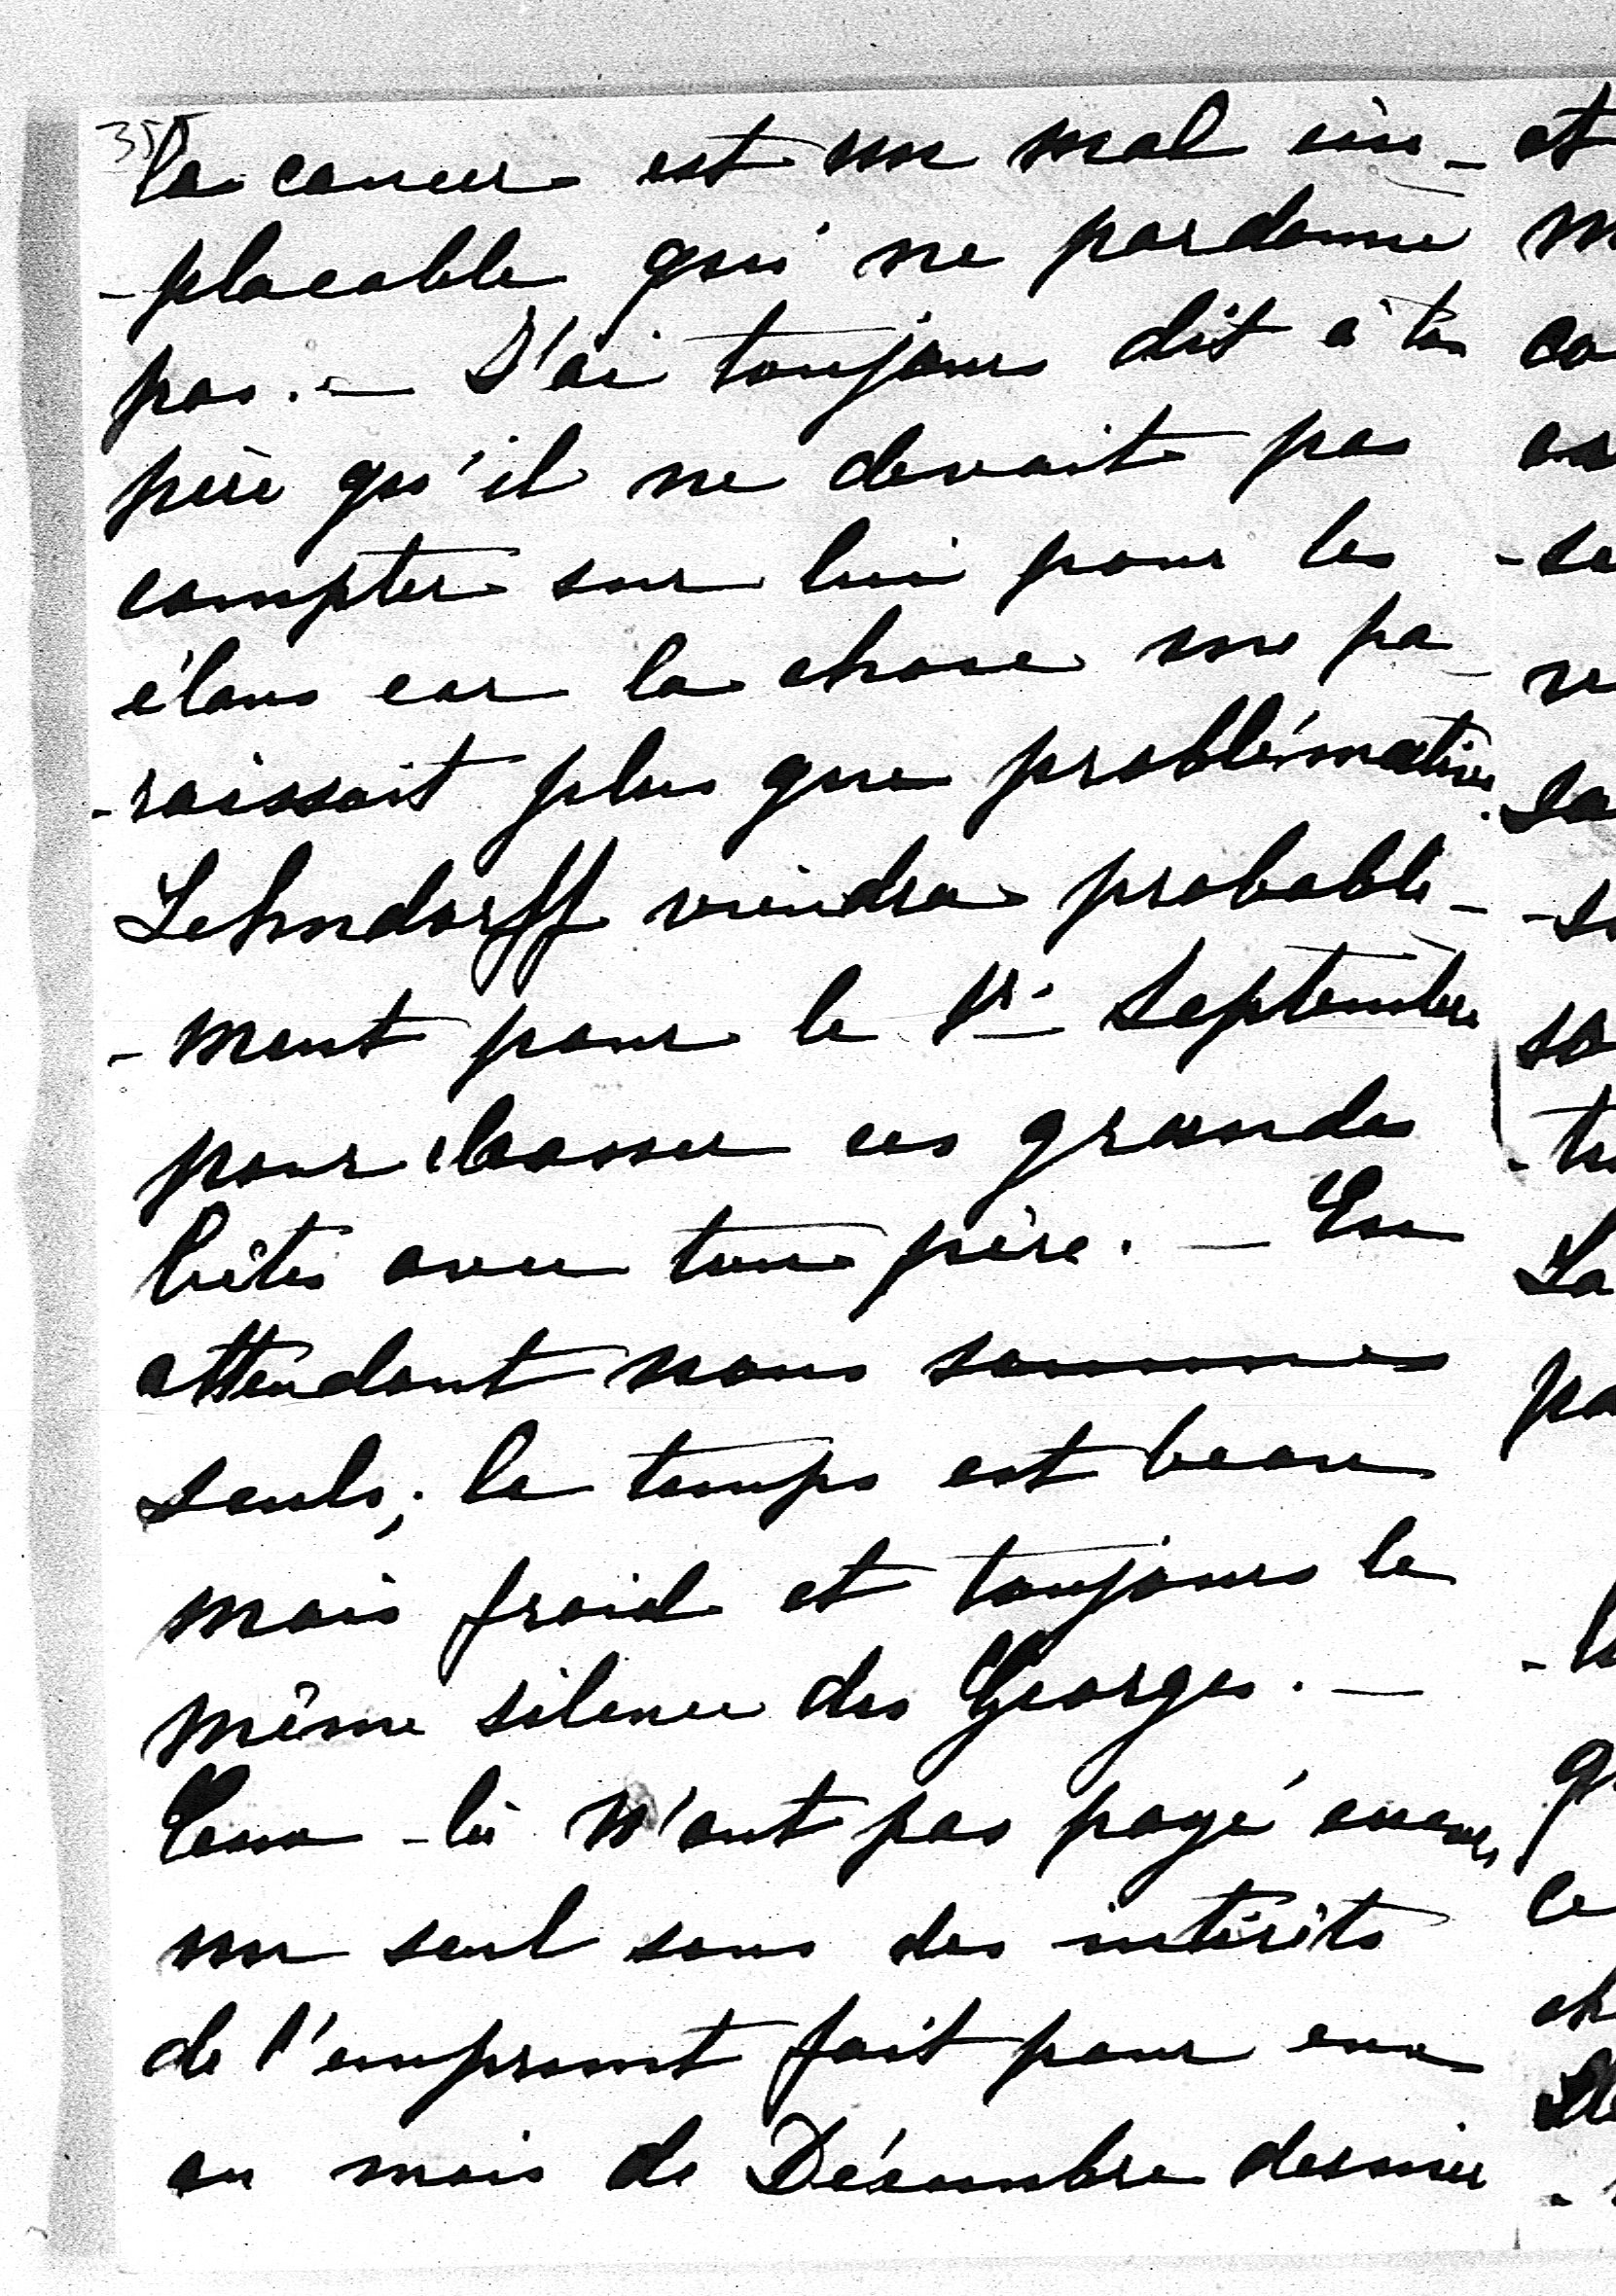 355
le cancer est un mal im-
-placable qui ne pardonne
pas. — J'ai toujours dit à ton
père qu'il ne devait pas
compter sur lui pour les
élans car la chose me pa-
-raissait plus que problématique.
Lehndorff viendra probable-
-ment pour le 1er Septembre
pour chasser ces grandes
bêtes avec ton père. — En
attendant nous sommes
seuls; le temps est beau
mais froid et toujours le
même silence des Georges. —
Ceux-là n'ont pas payé encore
un seul sous des intérêts
de l'emprunt fait pour eux
au mois de Décembre dernier